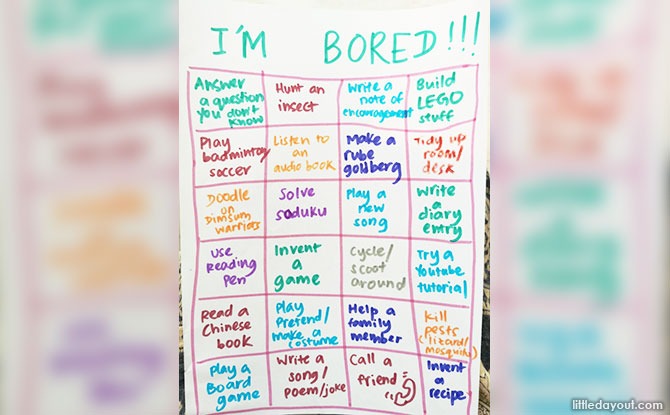 I'M BORED!!!
Answer
a question
you don't
know
Hunt an
insect
Write a
note of
encouragement
Build
LEGO
stuff
Play
badminton/
soccer
Listen to
an
audio book
Make a
rube
goldberg
Tidy up
room/
desk
Doodle
on
Dimsum
warriors
Solve
soduku
Play a
new
song
Write
a
diary
entry
Use
Reading
Pen
Invent
a
game
Cycle/
scoot
around
Try a
Youtube
tutorial
Read a
Chinese
book
Play
Pretend/
make a
costume
Help a
family
member
Kill
pests
(lizard/
mosquito)
Play a
Board
game
Write a
song/
poem/joke
Call a
friend
Invent
a
recipe
littledayout.com